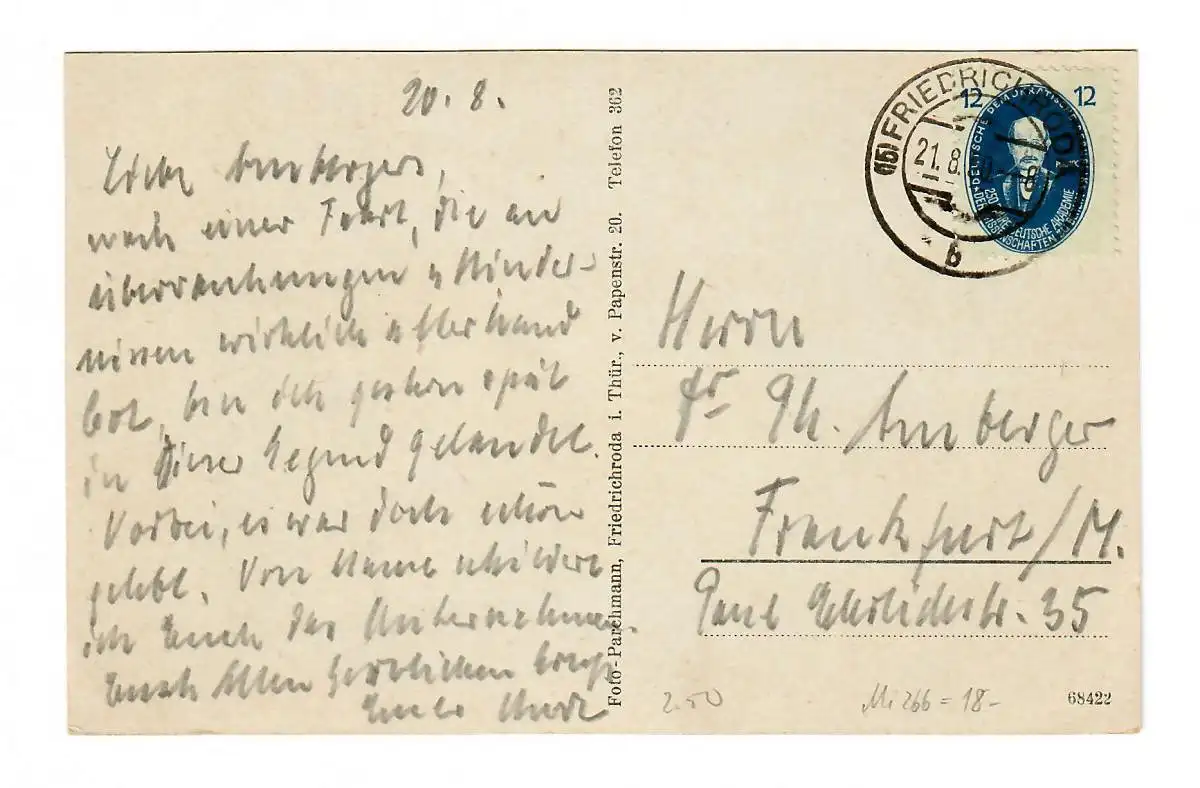 20. 8.
Liebe Ambergers,
nach einer Fahrt, die an
überraschungen u Hinder-
nissen wirklich allerhand
bot, bin ich gestern spät
in dieser Gegend gelandet.
Vorbei, es war doch schön
gelebt. Von Hause schildere
ich Euch das Unternehmen.
Euch Allen herzlichen Gruß
Euer
Foto-Parchmann, Friedrichroda i. Thür., v. Papenstr. 20. Telefon 362
(15) FRIEDRICHRODA
21.8.50
b
12 12
DEUTSCHE DEMOKRATISCHE REPUBLIK
250 JAHRE DEUTSCHE AKADEMIE
DER WISSENSCHAFTEN ZU BERLIN
Herrn
Dr Ph. Amberger
Frankfurt/M.
Paul Ehrlichstr. 35
2.50
Mi 266 = 18-
68422